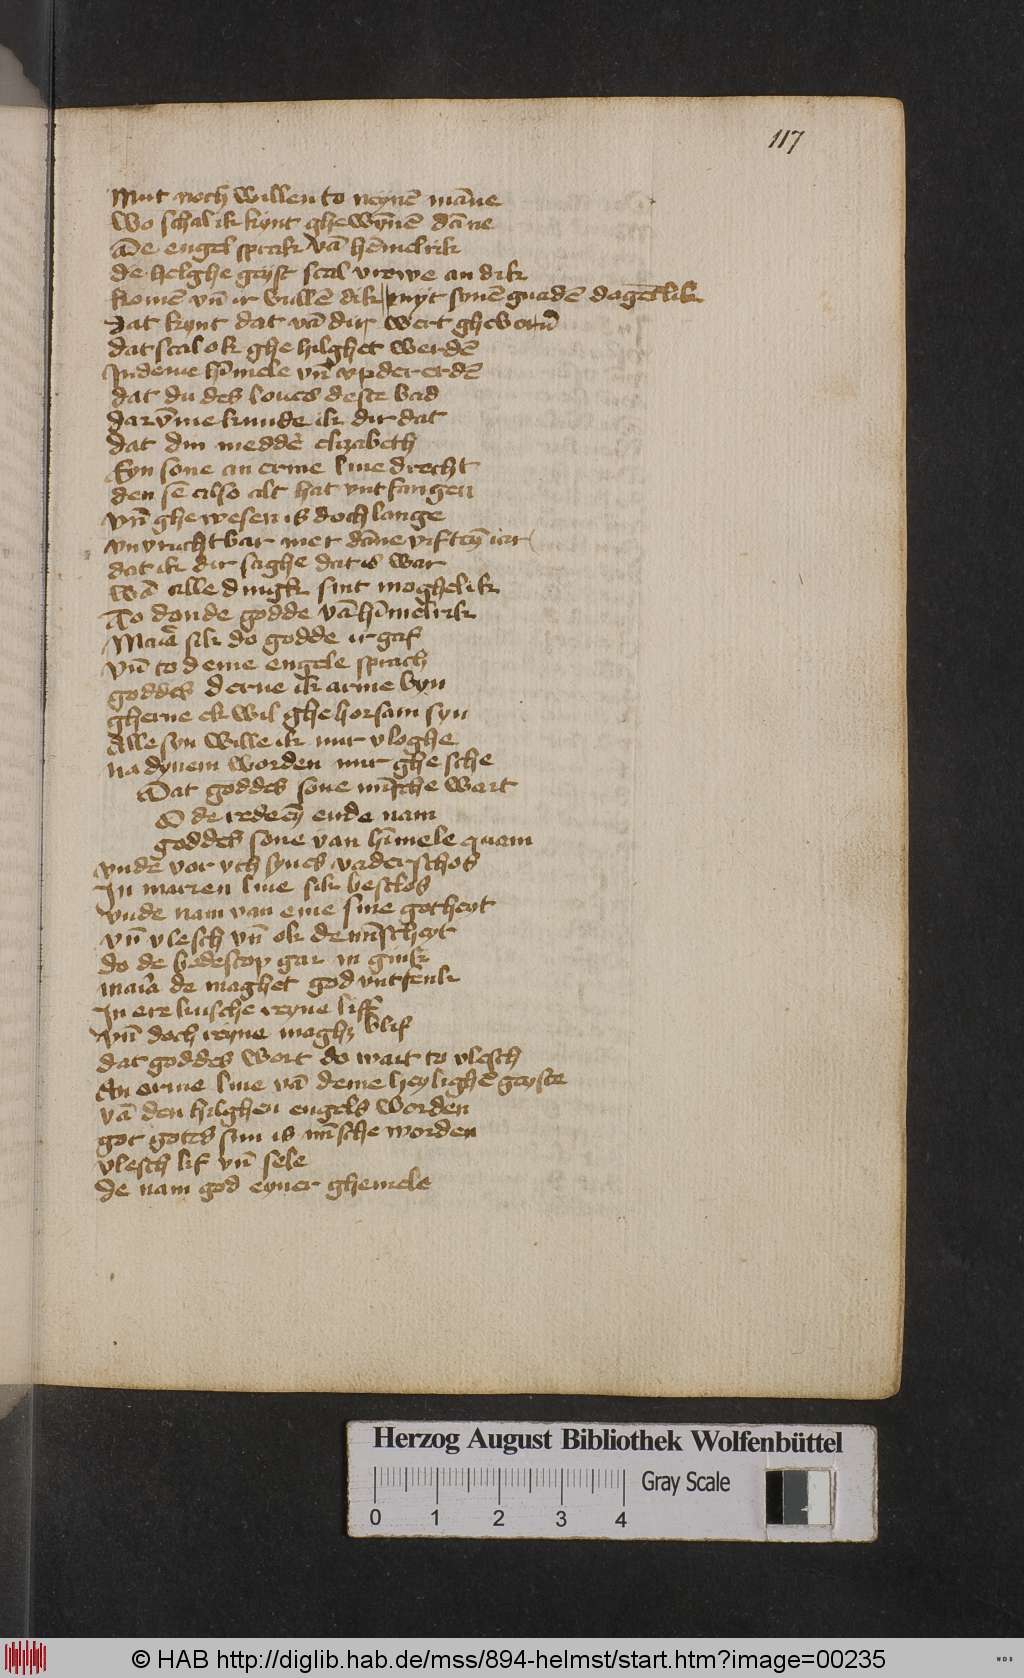 117
Mut noch willen to neynē māne
wo schal ik kynt ghewȳnē dāne
Ⅾe engel sprak vā hēmelrik
de helghe geyst scal vrowe an dik
komē vn̄ ir vullē dik myt synē gnadē dogētlik
Dat kynt dat vā dir wert gheborn̄
dat scal ok ghe hilghet werdē
In deme hīmele vn̄ vp der erdē
dat du des loues deste bad
dar vm̄e kunde ik dir dat
dat din meddē elizabeth
Eyn sone an erme liue drecht
den se also alt hat vntfangen
vn̄ ghe wesen is doch lange
vnvruchtbar mer dāne viftey̅ iar
dat ik dir saghe dat is war
wā alle dingk sint moghelik
To donde godde vā hīmelrik
Maīa sik do godde ir gaf
vn̄ to deme engele sprach
goddes derne ik arme byn
gherne ek wil ghe horsam syn
Alle syn wille ik mir vloghe
na dynem worden mir ghe sche
Dat goddes sone mīsche wart
O de rede ey̅ ende nam
goddes sone van hīmele quam
vnde vor vth synes vader schos
In marien liue sik beslos
vnde nam van eme sine gotheyt
vn̄ vlesch vn̄ ok de mīscheyt
do de bedescop gar in gink
maīa de maghet god vntfenk
In ere kusche reyne liff
vn̄ doch reyne maghꝫ blif
dat goddes wort do wart to vlesch
An erme liue vā deme heylighē geyste
vā den hilghen engels worden
got gotes sun is mīsche worden
vlesch lif vn̄ sele
de nam god eyner ghemele
Herzog August Bibliothek Wolfenbüttel
Gray Scale
0 1 2 3 4
© HAB http://diglib.hab.de/mss/894-helmst/start.htm?image=00235